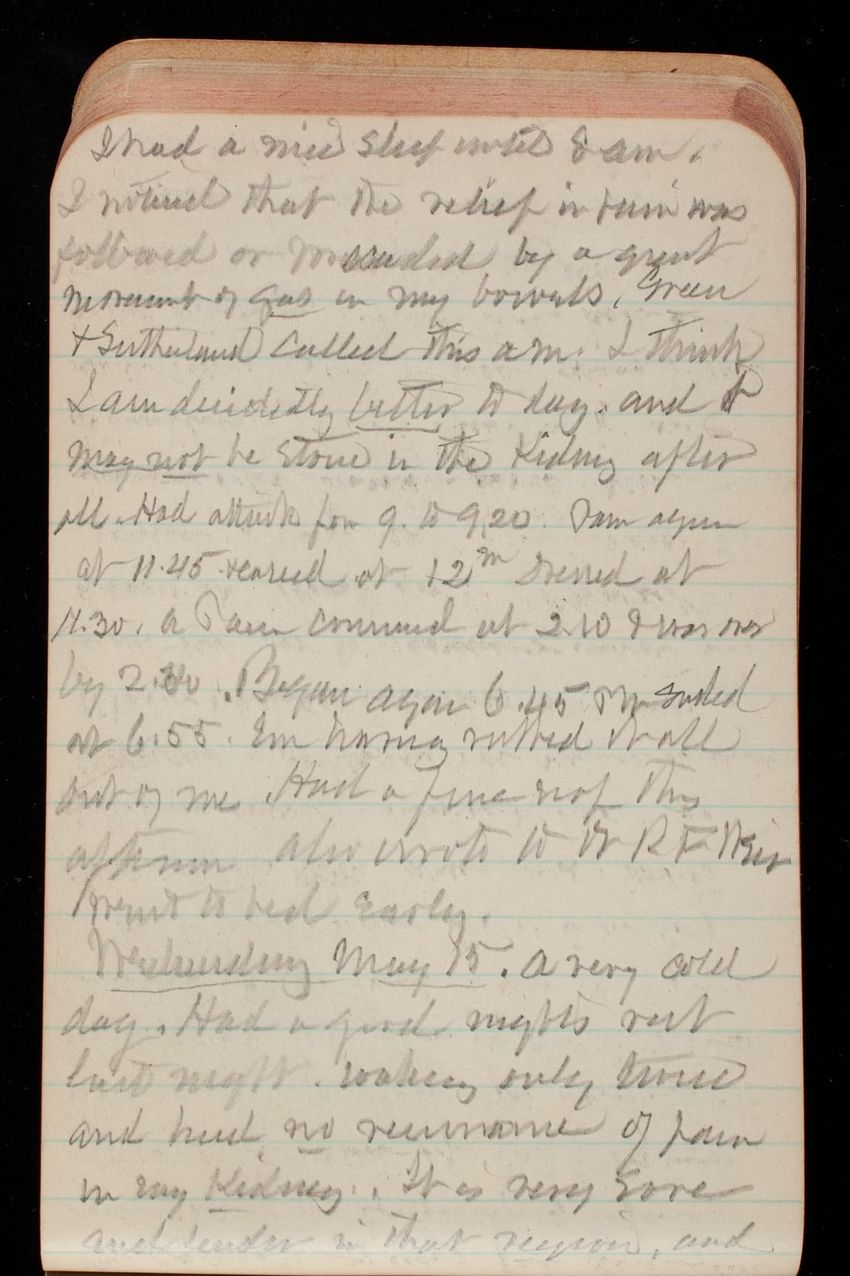 I had a nice sleep until 8 am.
I noticed that the relief in pain was
followed or preceeded by a great
movement of gas in my bowels. Green
& Sutherland called this a m. I think
I am decidedly better to day. and it
may not be stone in the Kidney after
all. Had attack fm 9. to 9.20. Pain again
at 11.45 ceased at 12 m Dressed at
11.30. a Pain commenced at 2.10 & was over
by 2.30. Began again 6.45 PM ended
at 6.55. Em having rubbed it all
out of me. Had a fine nap this
afternoon also wrote to Dr R F Weir
Went to bed Early.
Wednesday May 15. A very cold
day. Had a good nights rest
last night. waking only twice
and had no recurrence of pain
in my Kidney. It is very sore
and tender in that region, and